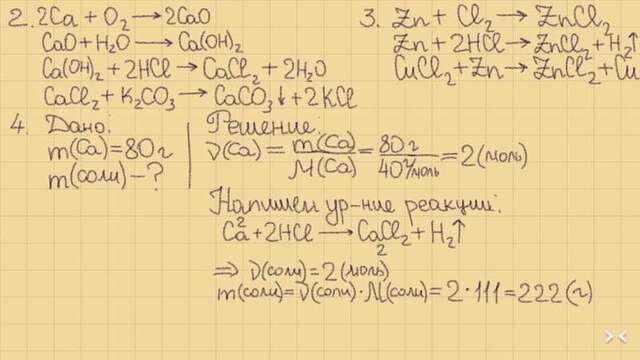 2. 2Ca + O₂ → 2CaO
CaO + H₂O → Ca(OH)₂
Ca(OH)₂ + 2HCl → CaCl₂ + 2H₂O
CaCl₂ + K₂CO₃ → CaCO₃↓ + 2KCl
3. Zn + Cl₂ → ZnCl₂
Zn + 2HCl → ZnCl₂ + H₂↑
CuCl₂ + Zn → ZnCl₂ + Cu
4. Дано:
m(Ca) = 80 г
m(соли) – ?
Решение:
ν(Ca) = m(Ca)/M(Ca) = 80 г/40 г/моль = 2 (моль)
Напишем ур-ние реакции:
2
Ca + 2HCl → CaCl₂ + H₂↑
2
⇒ ν(соли) = 2 (моль)
m(соли) = ν(соли) · M(соли) = 2 · 111 = 222 (г)